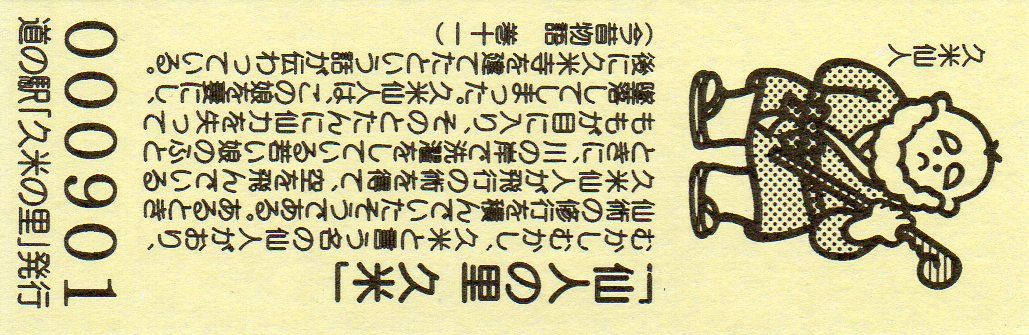 「仙人の里 久米」
むかしむかし、久米と言う名の仙人がおり、
仙術の修行を積んでいたそうである。あるとき
久米仙人が飛行の術を得て、空を飛んでいる
ときに、川の岸で洗濯をしている若い娘のふと
ももが目に入り、そのとたんに仙力を失って
墜落してしまった。久米仙人は、この娘を妻にし、
後に久米寺を建てたという話が伝わっている。
(今昔物語 巻十一)
久米仙人
000901
道の駅「久米の里」発行